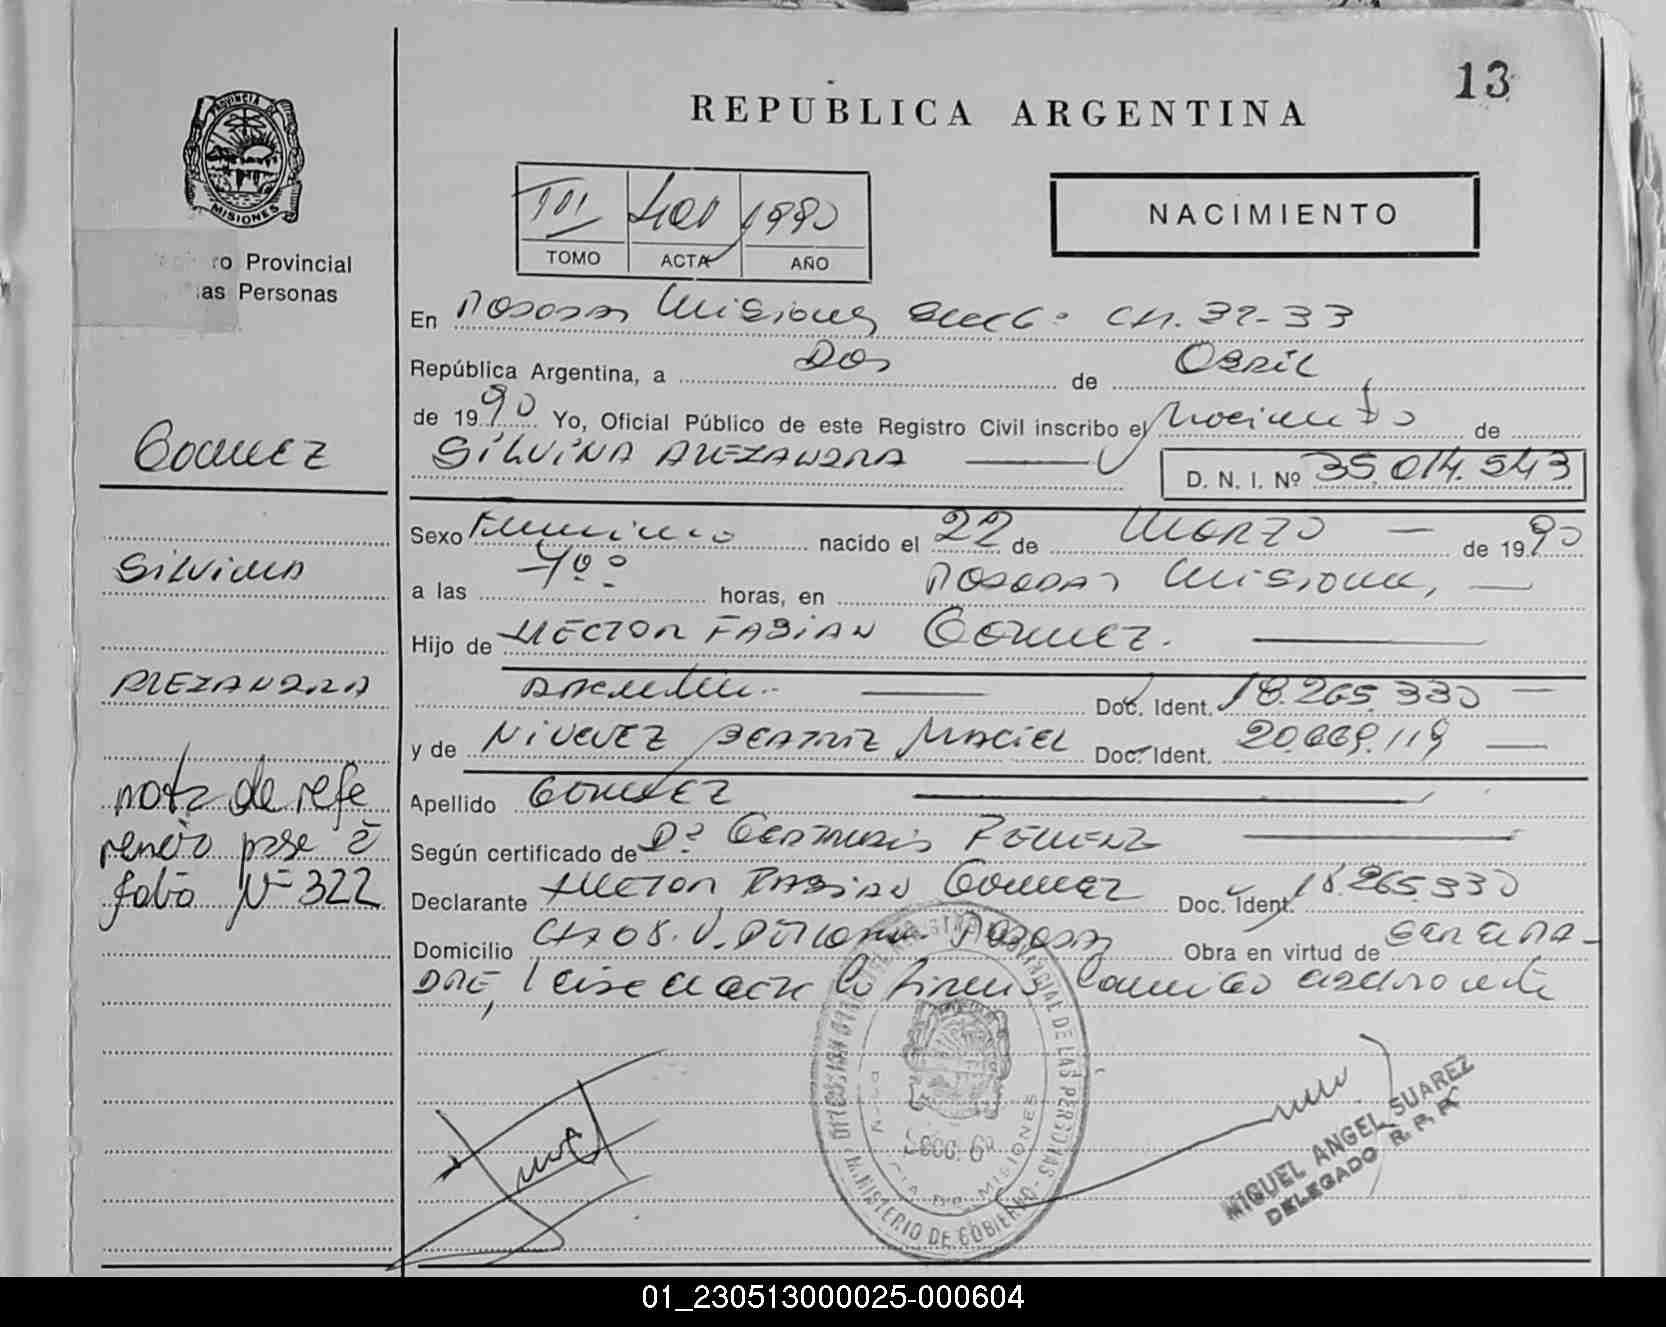 13
REPUBLICA ARGENTINA
PROVINCIA DE
MISIONES
ro Provincial
as Personas
III 401 1990
TOMO ACTA AÑO
NACIMIENTO
En Posadas Misiones Secc 6ª CH. 32-33
República Argentina, a Dos de Abril
de 1990 Yo, Oficial Público de este Registro Civil inscribo el Nacimiento de
SILVINA ALEJANDRA
D. N. I. Nº 35.014.543
Gomez
Silvina
ALEJANDRA
nota de refe
rencia pase a
folio Nº 322
Sexo Femenino nacido el 22 de Marzo de 1990
a las horas, en Posadas Misiones,
Hijo de HECTOR FABIAN GOMEZ.
Argentino. Doc. Ident. 18.265.330
y de BEATRIZ MACIEL Doc. Ident. 20.669.119
Apellido GOMEZ
Según certificado de
Declarante HECTOR FABIAN GOMEZ Doc. Ident. 18.265.330
Domicilio Posadas Obra en virtud de ser el PA-
DRE, Leída el acta la firma conmigo el declarante
DIRECCION PROVINCIAL DE LAS PERSONAS
MINISTERIO DE GOBIERNO
SECC. 6ª
MISIONES
MIGUEL ANGEL SUAREZ
DELEGADO R. P. P.
01_230513000025-000604